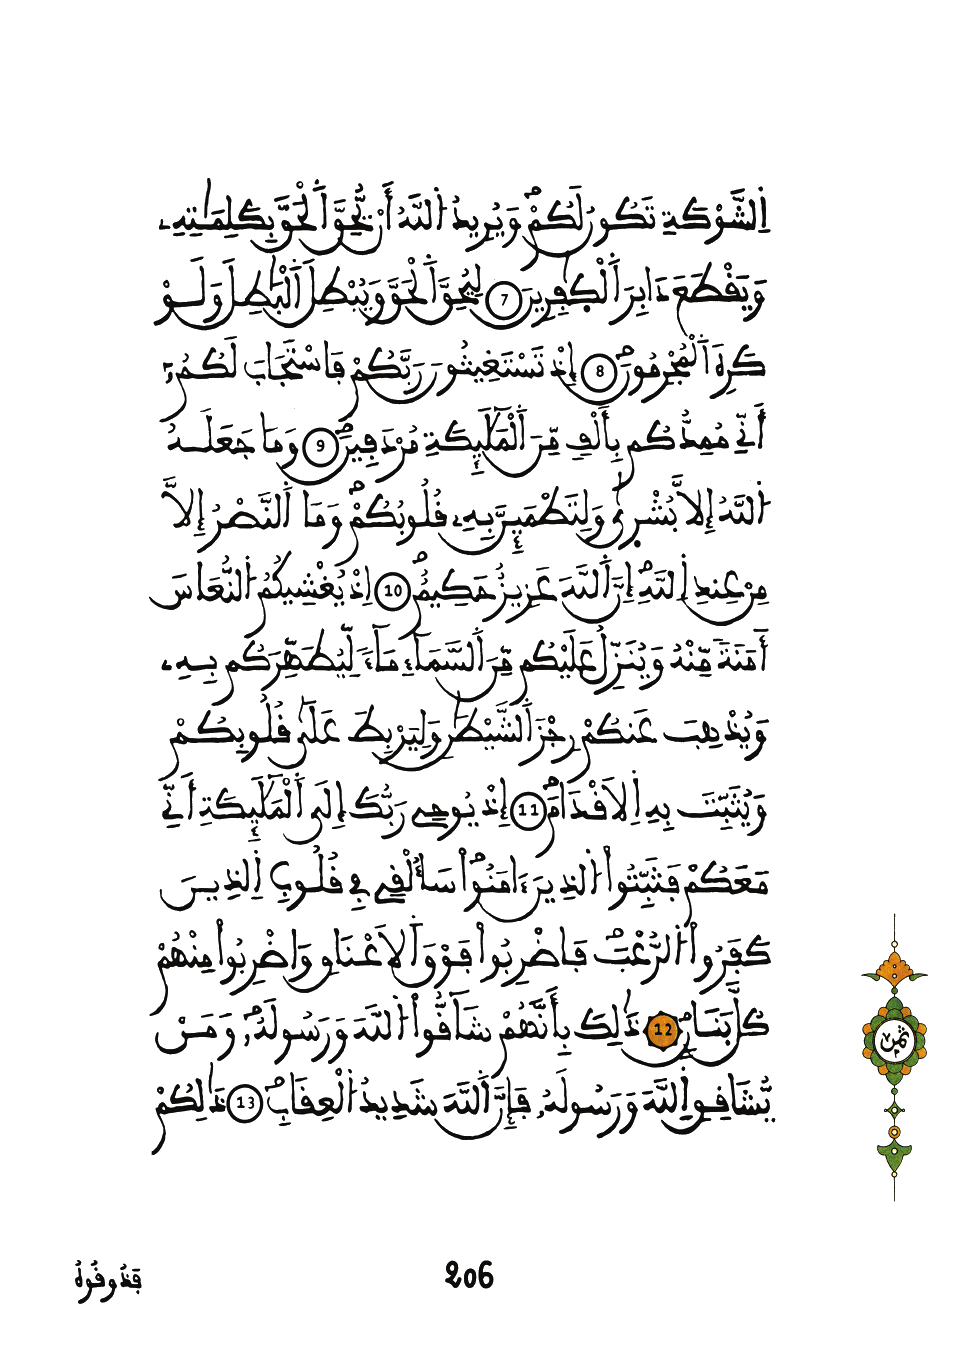 اَ۬لشَّوْكَةِ تَكُونُ لَكُمْ وَيُرِيدُ اُ۬للَّهُ أَنْ يُّحِقَّ اَ۬لْحَقَّ بِكَلِمَٰتِهِۦ
وَيَقْطَعَ دَابِرَ اَ۬لْكٰ۪فِرِينَ 7 لِيُحِقَّ اَ۬لْحَقَّ وَيُبْطِلَ اَ۬لْبَٰطِلَ وَلَوْ
كَرِهَ اَ۬لْمُجْرِمُونَ 8 إِذْ تَسْتَغِيثُونَ رَبَّكُمْ فَاسْتَجَابَ لَكُمُۥٓ
أَنِّے مُمِدُّكُم بِأَلْفٖ مِّنَ اَ۬لْمَلَٰٓئِكَةِ مُرْدَفِينَۖ 9 وَمَا جَعَلَهُ
اُ۬للَّهُ إِلَّا بُشْر۪يٰ وَلِتَطْمَئِنَّ بِهِۦ قُلُوبُكُمْۖ وَمَا اَ۬لنَّصْرُ إِلَّا
مِنْ عِندِ اِ۬للَّهِۖ إِنَّ اَ۬للَّهَ عَزِيزٌ حَكِيمٌۖ 10 إِذْ يُغْشِيكُمُ اُ۬لنُّعَاسَ
أَمَنَةٗ مِّنْهُ وَيُنَزِّلُ عَلَيْكُم مِّنَ اَ۬لسَّمَآءِ مَآءٗ لِّيُطَهِّرَكُم بِهِۦ
وَيُذْهِبَ عَنكُمْ رِجْزَ اَ۬لشَّيْطَٰنِ وَلِيَرْبِطَ عَلَىٰ قُلُوبِكُمْ
وَيُثَبِّتَ بِهِ اِ۬لَاقْدَامَۖ 11 إِذْ يُوحِے رَبُّكَ إِلَى اَ۬لْمَلَٰٓئِكَةِ أَنِّے
مَعَكُمْ فَثَبِّتُواْ اُ۬لذِينَ ءَامَنُواْۖ سَأُلْقِے فِے قُلُوبِ اِ۬لذِينَ
كَفَرُواْ اُ۬لرُّعْبَۖ فَاضْرِبُواْ فَوْقَ اَ۬لَاعْنَاقِ وَاضْرِبُواْ مِنْهُمْ
كُلَّ بَنَانٖۖ 12 ذَٰلِكَ بِأَنَّهُمْ شَآقُّواْ اُ۬للَّهَ وَرَسُولَهُۥۖ وَمَنْ
يُّشَاقِقِ اِ۬للَّهَ وَرَسُولَهُۥ فَإِنَّ اَ۬للَّهَ شَدِيدُ اُ۬لْعِقَابِۖ 13 ذَٰلِكُمْ
ثمن
206
فَذُوقُوهُ